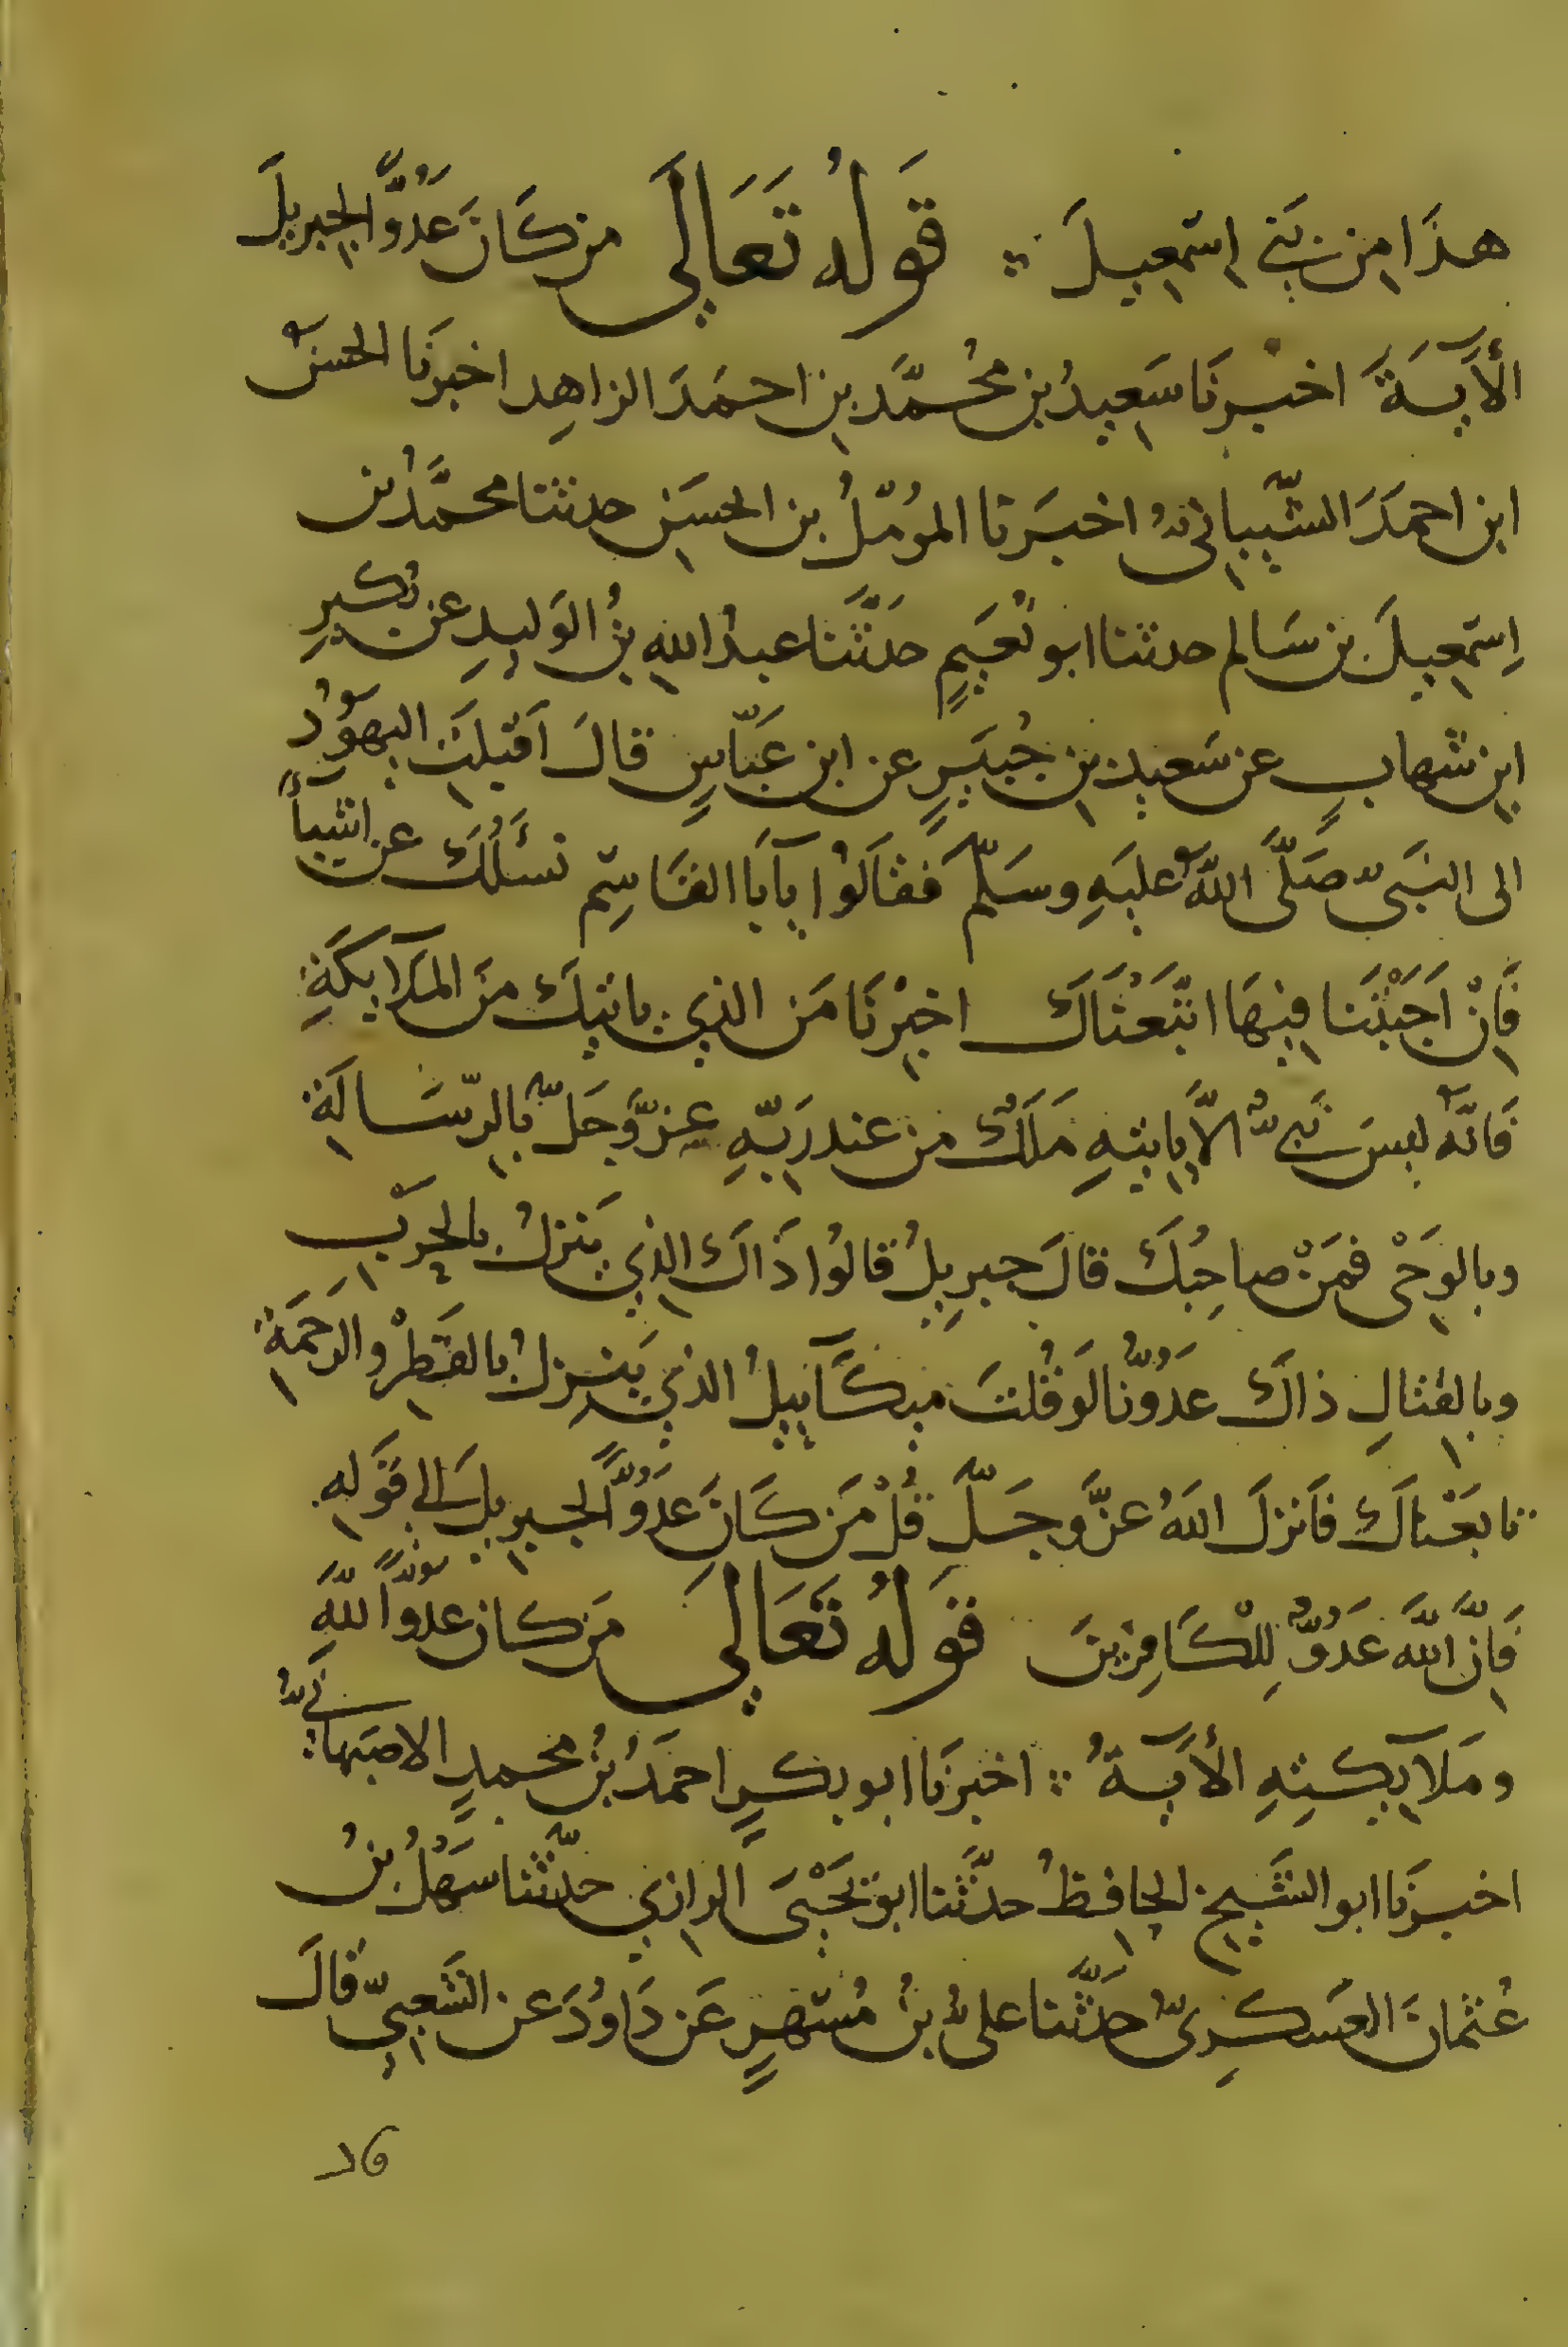 هذَا من بَنِي اسمعيلَ ∴ قَولُه تَعَالَى من كَانَ عَدُوًّا لجبريلَ
الأَيَةَ اخبرنَا سَعيدُ بن محُمَّد بن احمَدَ الزاهِد اخبرَنا الحسنُ
ابن احمدَ الشَّيبانيُّ اخبَرنا المؤمّلُ بن الحسَن حدثنا محمَّدُ بن
اِسمعيلَ بن سَالم حدثنا ابو نُعَيمٍ حدَّثَنا عبدُ الله بنُ الوَليدِ عن بُكيرِ
ابن شهابٍ عن سَعيد بن جُبَيرٍ عن ابن عَبّاسٍ قالَ اَقبلَتِ اليهوُدُ
الى النبَى صَلَّى اللهُ عليَهِ وسَلّم فَقالَوُا يآبَا القَاسِم نسْئَلُكَ عن اشيآءَ
فَاِنْ اَجَبْتَنا فيهَا اتّبَعْنَاكَ اخبِرْنَا مَن الذي ياتيكَ منَ المَلآيكَةِ
فَانّهُ ليسَ نَبيٌّ الاَّ ياتيهِ مَلَكٌ من عند رَبّهِ عزَّ وَجَلّ بالرّسَالَةِ
وبالوَحْى فمَنْ صاحِبُكَ قالَ جبرِيلُ قالُوا ذَاكَ الذِي يَنزلُ بالحرَبِ
وبالقتالِ ذاكَ عَدُوُّنا لَو قُلتَ ميكَآييلُ الذي يَنزِلُ بالقَطْرِ والرَحمَةِ
تابَعْناكَ فَانزلَ اللهُ عزَّ وجَلّ قُلْ مَن كَانَ عَدُوًّا لجبريلَ الي قَولِهِ
فَاِنَّ اللهَ عَدُوٌّ لِلْكَافِرينَ قَولُه تَعَالي مَن كان عدُوًّا للهِ
ومَلآيكتِهِ الأَيَةُ ∴ اخبرَنا ابو بكرٍ احمَدُ بنُ محمدٍ الاصبَهانيُّ
اخبرَنا ابو الشَيخ الحافِظُ حدَّثَنا ابو يَحْيَى الرازي حدّثنا سَهْلُ بنُ
عُثمانَ العَسكرِىُّ حَدَّثَنا علىُّ بنُ مُسْهرٍ عَن دَاوُدَ عن الشَعبيّ قَالَ
١٥